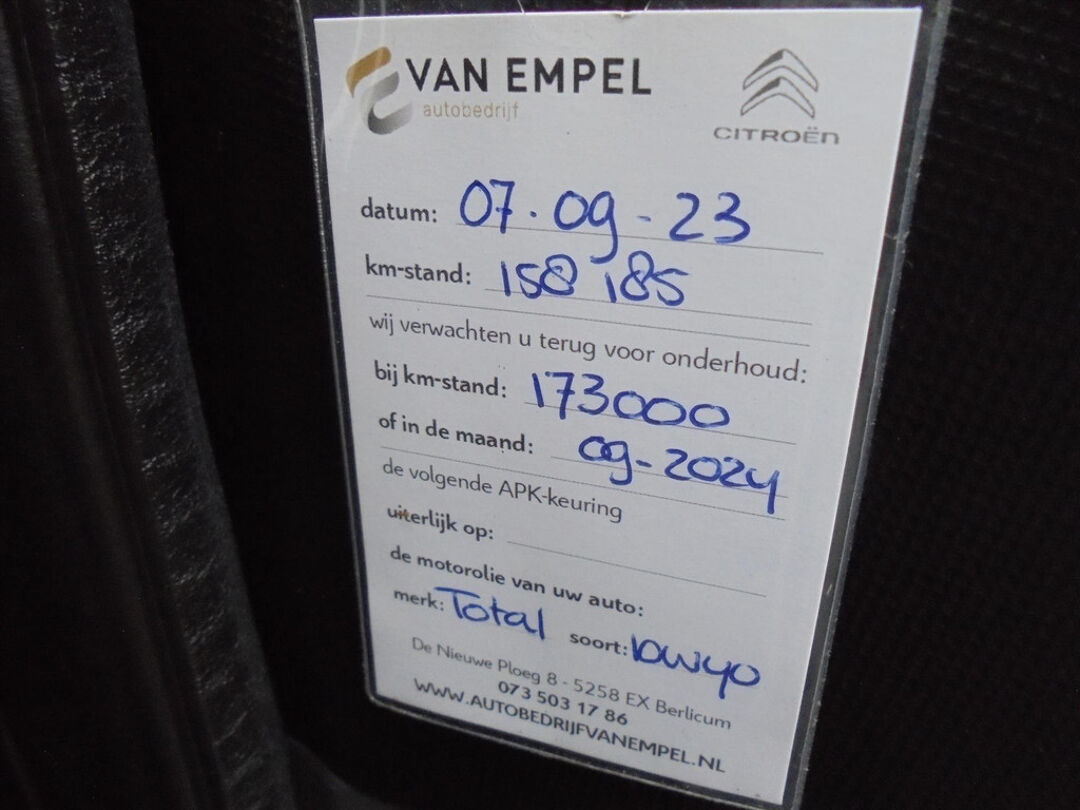 VAN EMPEL
autobedrijf
CITROËN
datum: 07.09-23
km-stand: 158 185
wij verwachten u terug voor onderhoud:
bij km-stand: 173000
of in de maand: 09-2024
de volgende APK-keuring
uiterlijk op:
de motorolie van uw auto:
merk: Total soort: 10W40
De Nieuwe Ploeg 8 - 5258 EX Berlicum
073 503 17 86
WWW.AUTOBEDRIJFVANEMPEL.NL